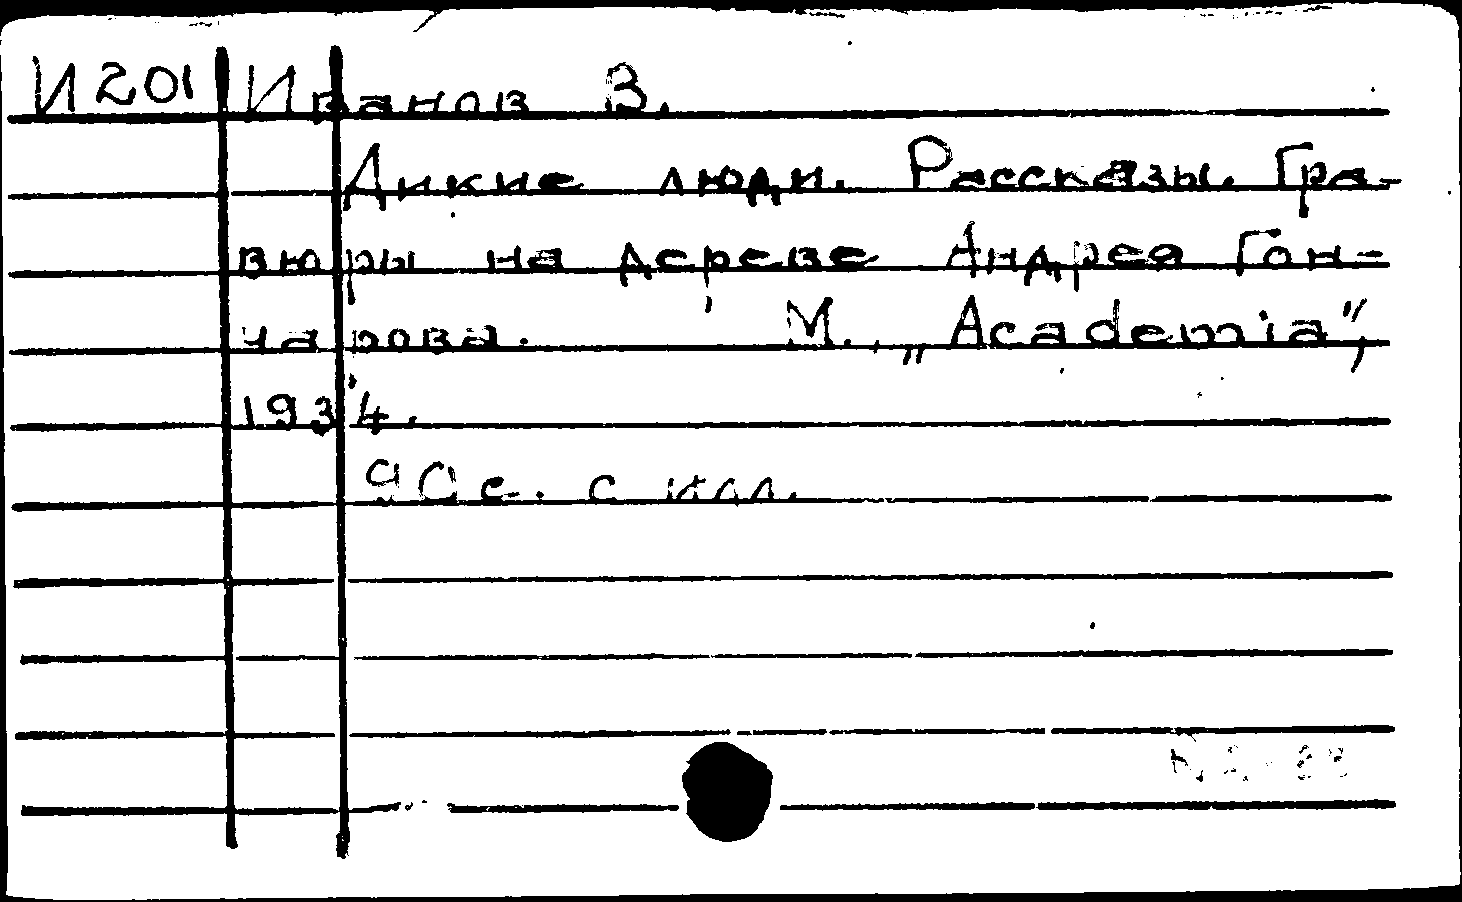 И201 Иванов В.
Дикие люди. Рассказы. Гра-
вюры на дереве Андрея Гон-
чарова. М., „Academia",
1934.
90 с. с илл.